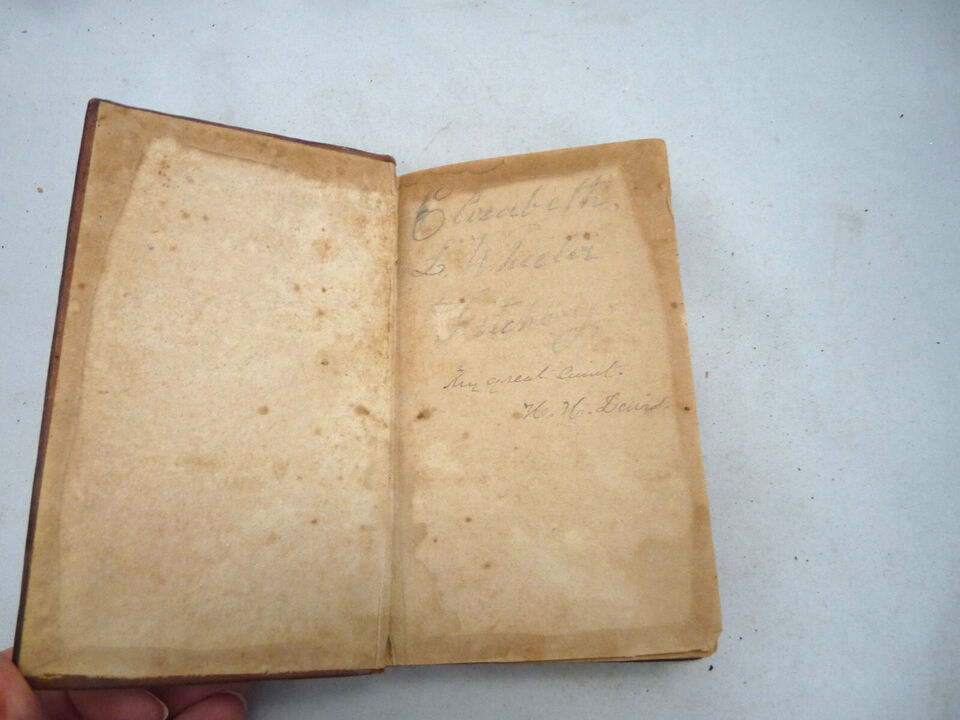 Elizabeth.
L. Wheeler
Fitchburg
My great Aunt.
H. H. Davis.